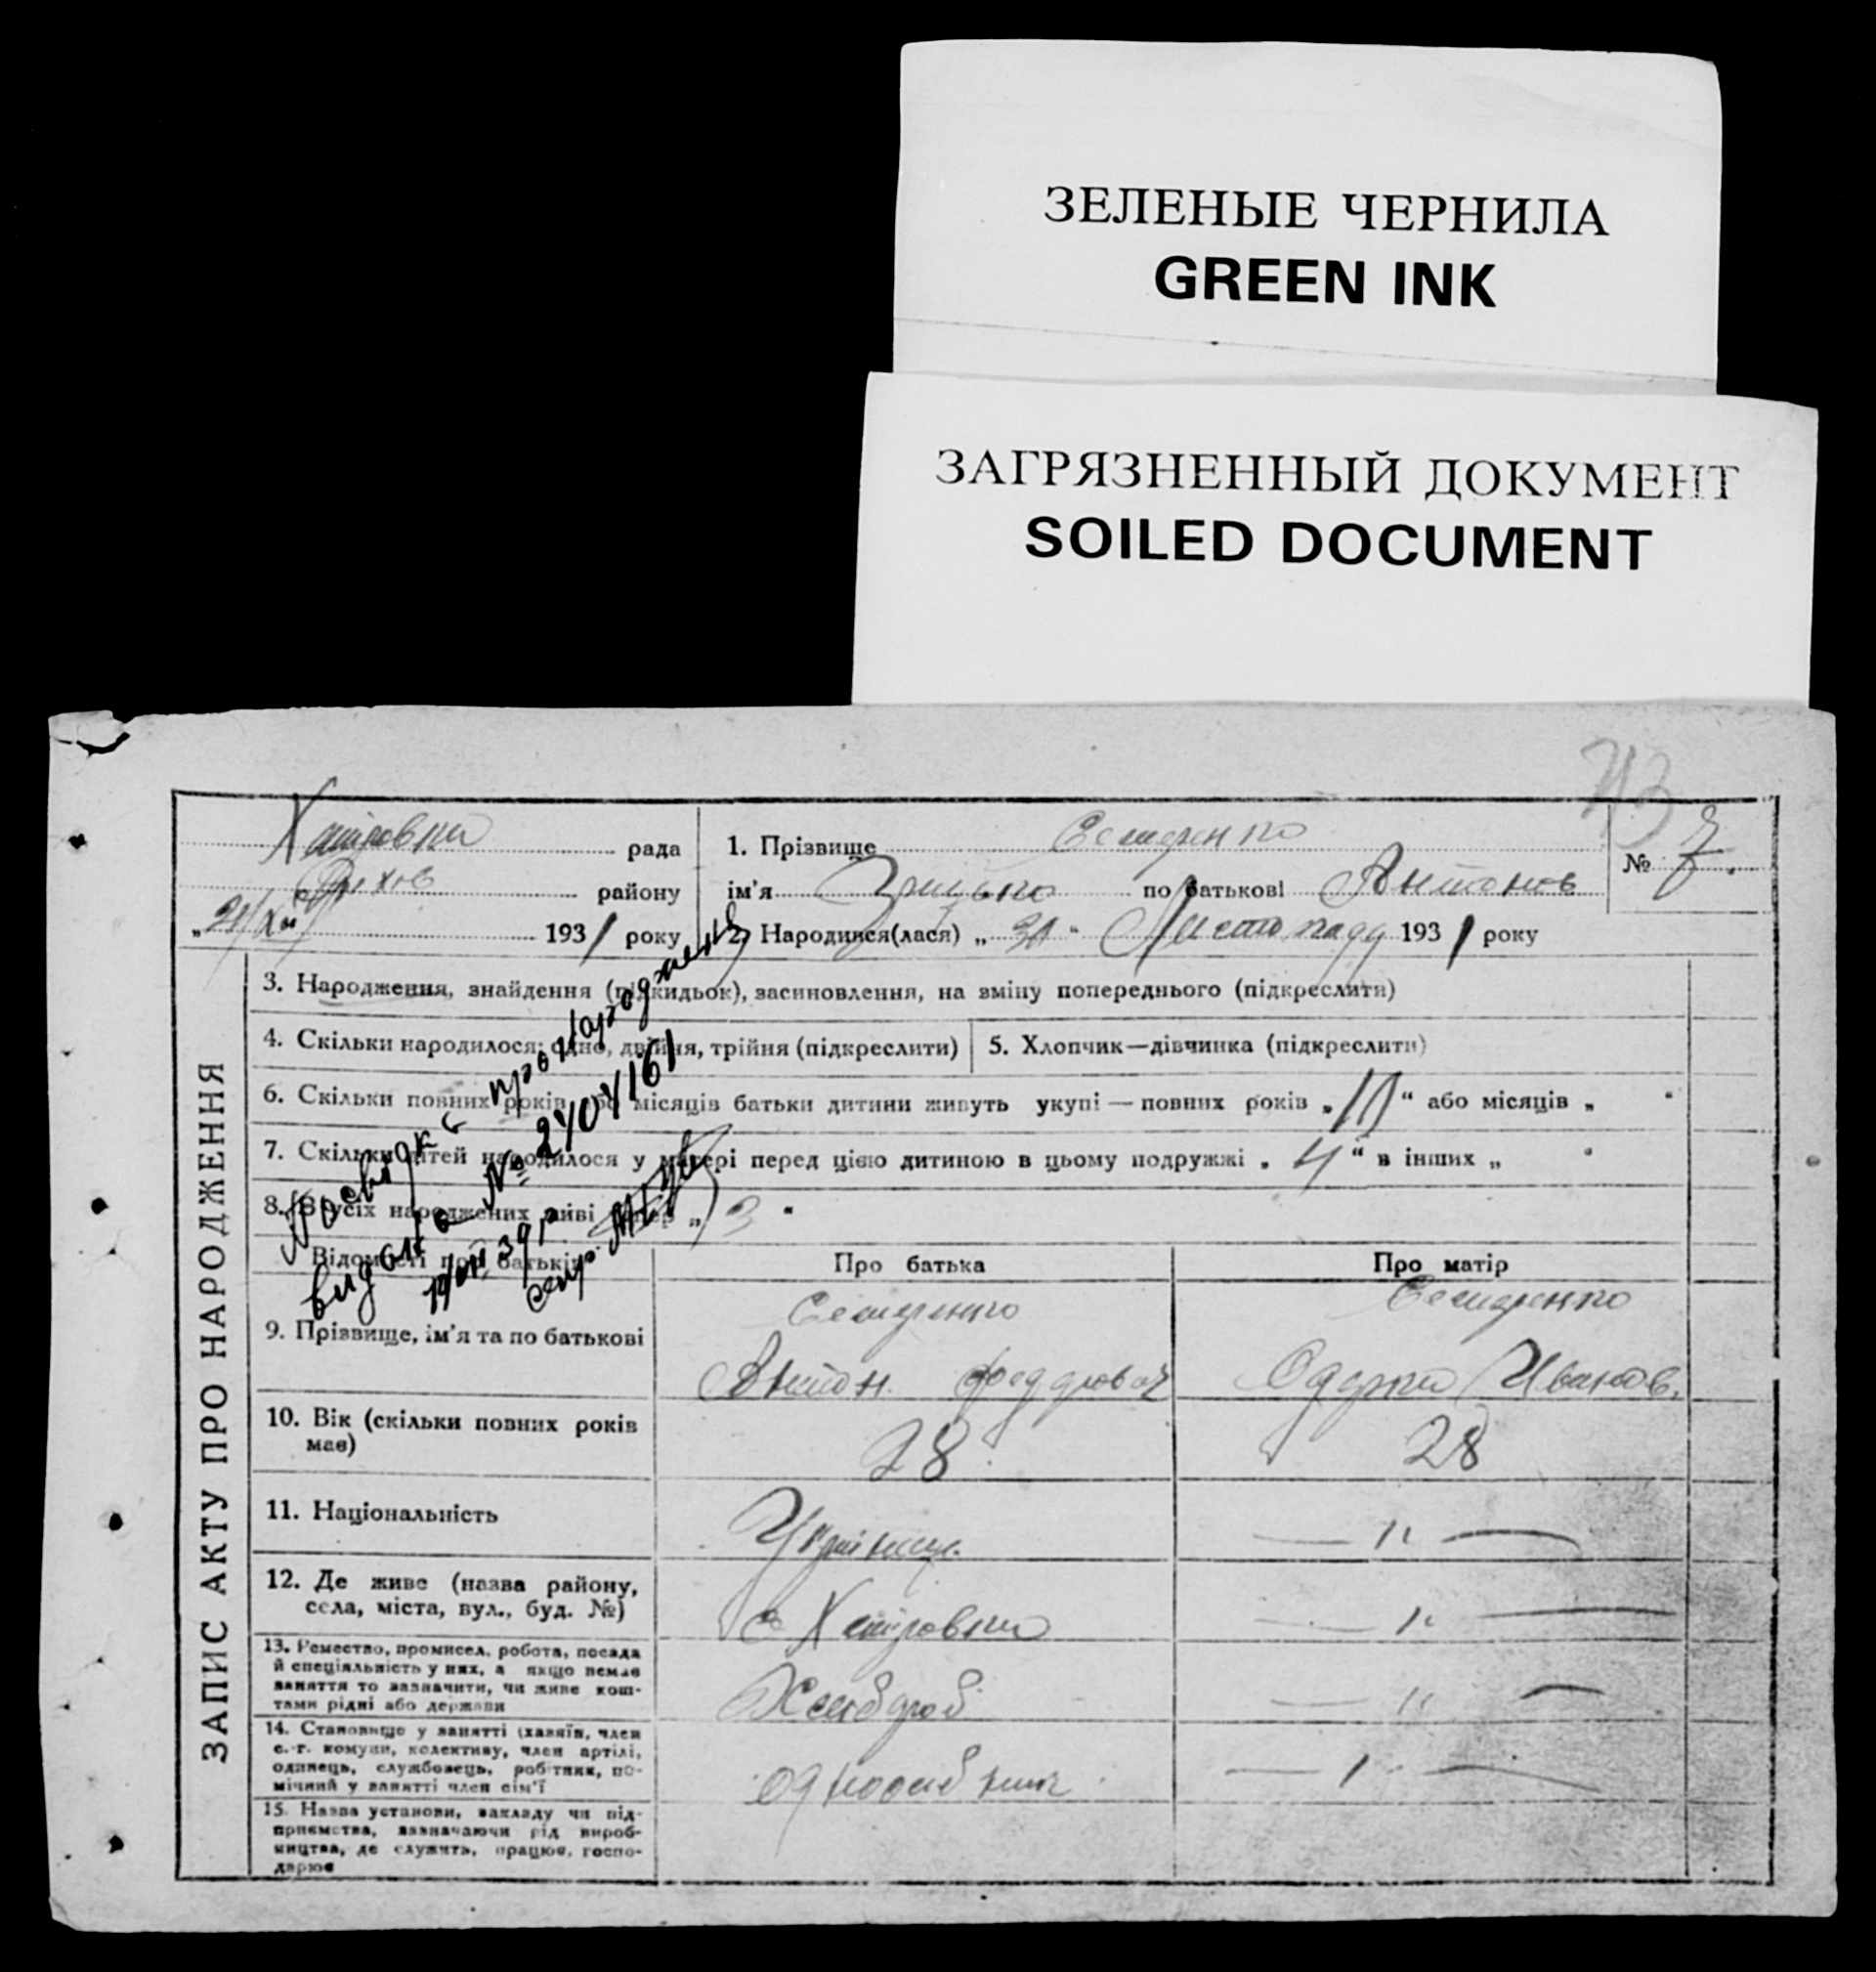 ЗЕЛЕНЫЕ ЧЕРНИЛА
GREEN INK
ЗАГРЯЗНЕННЫЙ ДОКУМЕНТ
SOILED DOCUMENT
ЗАПИС АКТУ ПРО НАРОДЖЕННЯ
рада
району
1931 року
1. Прізвище
№ 7.
ім'я Грицько по батькові Антонов
2. Народився(лася) „ " Листопаду 1931 року
3. Народження, знайдення (підкидьок), засиновлення, на зміну попереднього (підкреслити)
4. Скільки народилося: одно, двійня, трійня (підкреслити)
5. Хлопчик—дівчинка (підкреслити)
6. Скільки повних років або місяців батьки дитини живуть укупі — повних років „10" або місяців „ "
7. Скільки дітей народилося у матері перед цією дитиною в цьому подружжі „4" в інших „ "
8. З усіх народжених живі тепер „3"
Посвідка про народження
видана № 2404161
39 р
секр.
Відомості про батьків
Про батька
Про матір
9. Прізвище, ім'я та по батькові
Антон Федорович
Одарка Иванов.
10. Вік (скільки повних років має)
28
28
11. Національність
Українец.
— " —
12. Де живе (назва району, села, міста, вул., буд. №)
— " —
13. Ремество, промисел, робота, посада й спеціяльність у них, а якщо немає заняття то зазначити, чи живе коштами рідні або держави
Хлібороб
— " —
14. Становище у занятті (хазяїн, член с.-г. комуни, колективу, член артілі, одинець, службовець, робітник, помічний у занятті член сім'ї
одноосібник
15. Назва установи, закладу чи підприємства, зазначаючи рід виробництва, де служить, працює, господарює